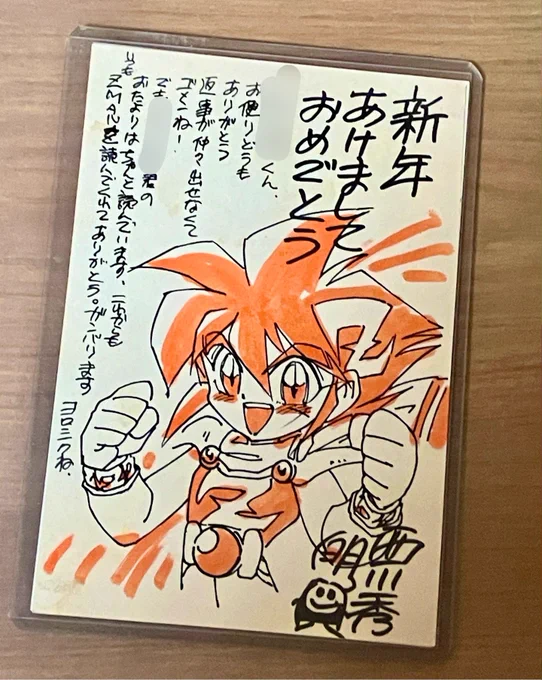 新年
あけまして
おめでとう
くん、
お便りどうも
ありがとう
返事が仲々出せなくて
ゴメンねー
でも
君の
おたよりはちゃんと読んでいます、これからも
いつも
ZMANを読んでくれてありがとう。ガンバります
ヨロシクね、
西川秀明